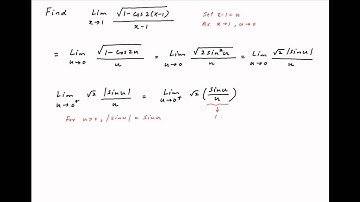 Find Lim x→1 √(1-cos2(x-1)) / (x-1) Set x-1=u
As x→1, u→0
= Lim u→0 √(1-cos2u) / u = Lim u→0 √(2sin²u) / u = Lim u→0 √2 |sinu| / u
Lim u→0⁺ √2 |sinu| / u = Lim u→0⁺ √2 (sinu / u)
For u>0, |sinu| = sinu ↓ 1